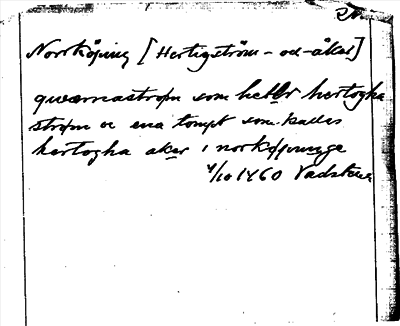 Norrköping [Hertigström- och -åker]
qwærnastrøm som heter hertogha
strøm oc ena tompt som kallas
hertogha aker i norkøpunge
4/10 1460 Vadstena